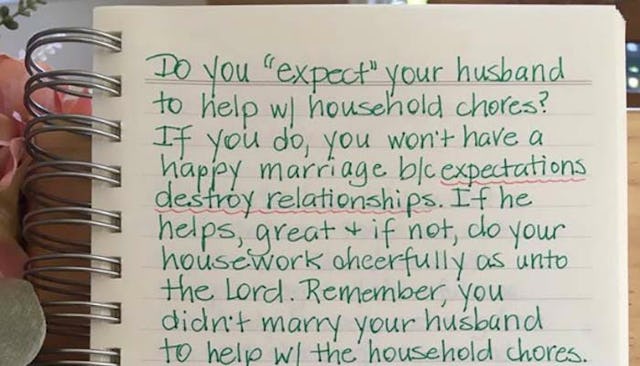 Do you "expect" your husband
to help w/ household chores?
If you do, you won't have a
happy marriage b/c expectations
destroy relationships. If he
helps, great + if not, do your
housework cheerfully as unto
the Lord. Remember, you
didn't marry your husband
to help w/ the household chores.